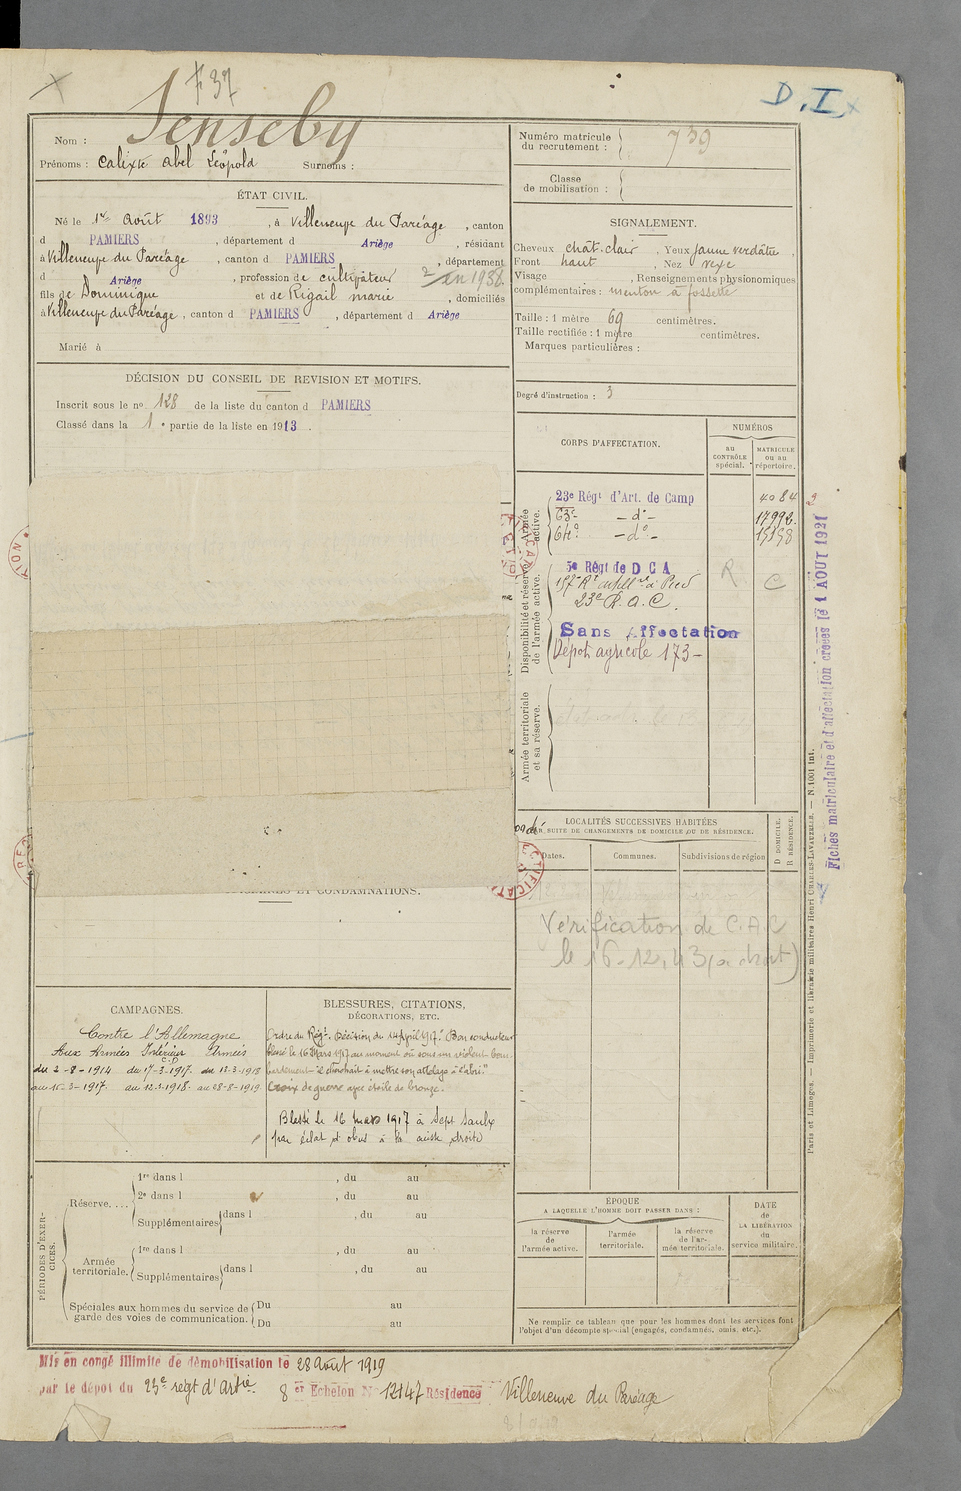 F 37
D.I.
Nom : Senseby
Prénoms : Calixte Abel Léopold Surnoms :
ÉTAT CIVIL.
Né le 1er Août 1893, à Villeneuve du Paréage, canton
d PAMIERS, département d Ariège, résidant
à Villeneuve du Paréage, canton d PAMIERS, département
d Ariège, profession de cultivateur
2 en 1938
fils de Dominique et de Rigail marie, domiciliés
à Villeneuve du Paréage, canton d PAMIERS, département d Ariège
Marié à
DÉCISION DU CONSEIL DE REVISION ET MOTIFS.
Inscrit sous le no 128 de la liste du canton d PAMIERS
Classé dans la 1e partie de la liste en 1913.
Numéro matricule du recrutement : 739
Classe de mobilisation :
SIGNALEMENT.
Cheveux chât-clair, Yeux jaune verdâtre,
Front haut, Nez vexe
Visage , Renseignements physionomiques
complémentaires : menton à fossette
Taille : 1 mètre 69 centimètres.
Taille rectifiée : 1 mètre centimètres.
Marques particulières :
Degré d'instruction : 3
CORPS D'AFFECTATION.
NUMÉROS
au CONTRÔLE spécial.
MATRICULE ou au répertoire.
Armée active.
23e Régt d'Art. de Camp 4084
63e - do - 17992.
64e - do - 15158
Disponibilité et réserve de l'armée active.
5e Régt de D C A
157e Rt artill à Pied
23e R.A.C.
R C
Sans Affectation
Dépot agricole 173-
Armée territoriale et sa réserve.
LOCALITÉS SUCCESSIVES HABITÉES
PAR SUITE DE CHANGEMENTS DE DOMICILE OU DE RÉSIDENCE.
Dates.
Communes.
Subdivisions de région
D DOMICILE.
R RÉSIDENCE.
Vérification de C.A.C
le 16-12-43
ET CONDAMNATIONS.
CAMPAGNES.
Contre l'Allemagne
Aux Armées Intérieur Armées
C.D
du 2-8-1914 du 17-3-1917. du 12-3-1918
au 16-3-1917 au 12-3-1918. au 28-8-1919
BLESSURES, CITATIONS,
DÉCORATIONS, ETC.
Ordre du Régt. Décision du 14 April 1917. "Bon conducteur
blessé le 16 Mars 1917 au moment où sous un violent bom-
bardement il cherchait à mettre son attelage à l'abri."
Croix de guerre avec étoile de bronze.
Blessé le 16 mars 1917 à Sept Saulx
par éclat d'obus à la cuisse droite
PÉRIODES D'EXERCICES.
Réserve....
1re dans l , du au
2e dans l , du au
Supplémentaires dans l , du au
Armée territoriale.
1re dans l , du au
Supplémentaires dans l , du au
Spéciales aux hommes du service de garde des voies de communication.
Du au
Du au
ÉPOQUE
A LAQUELLE L'HOMME DOIT PASSER DANS :
la réserve de l'armée active.
l'armée territoriale.
la réserve de l'armée territoriale.
DATE de LA LIBÉRATION du service militaire.
Ne remplir ce tableau que pour les hommes dont les services font
l'objet d'un décompte spécial (engagés, condamnés, omis, etc.).
Mis en congé illimité de démobilisation le 28 Août 1919
par le dépôt du 23e régt d'Artie. 8 er Echelon No 12147 Résidence Villeneuve du Paréage
Paris et Limoges. — Imprimerie et librairie militaires Henri CHARLES-LAVAUZELLE. — N. 1001 Int.
Fiches matriculaire et d'affectation créées le 1 AOUT 1921